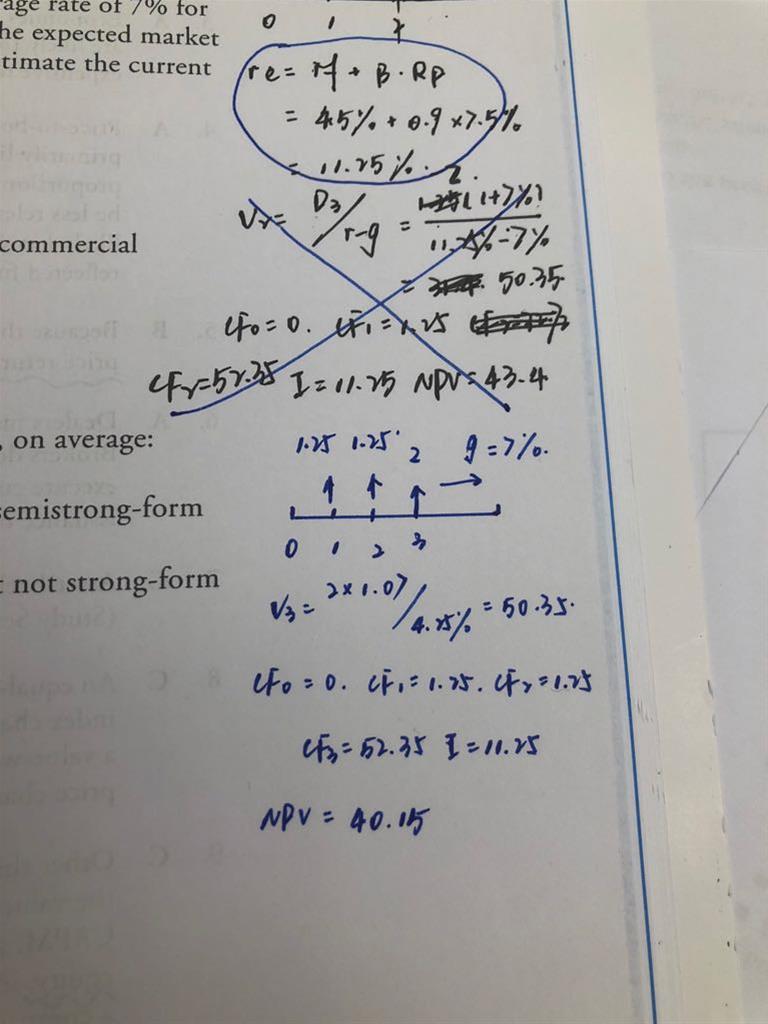 rage rate of 7% for
he expected market
timate the current
0 1 2
re = rf + β · RP
= 4.5% + 0.9 × 7.5%
= 11.25%.
2.
V2 = D3 / r-g = (1+7%) / 11.25% - 7%
= 50.35
commercial
CF0 = 0. CF1 = 1.25
CF2 = 52.35 I = 11.25 NPV = 43.4
, on average:
1.25 1.25 2 g = 7%.
semistrong-form
0 1 2 3
t not strong-form
V3 = 2 × 1.07 / 4.25% = 50.35.
CF0 = 0. CF1 = 1.25. CF2 = 1.25
CF3 = 52.35 I = 11.25
NPV = 40.15